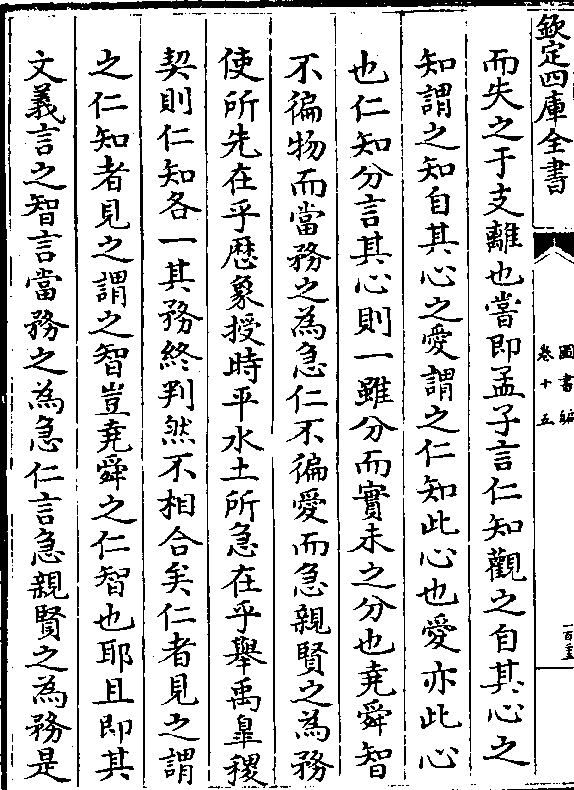 欽定四庫全書
圖書編
卷十五
而失之于支離也嘗即孟子言仁知觀之自其心之
知謂之知自其心之愛謂之仁知此心也愛亦此心
也仁知分言其心則一雖分而實未之分也堯舜智
不徧物而當務之為急仁不徧愛而急親賢之為務
使所先在乎厯象授時平水土所急在乎舉禹臯稷
契則仁知各一其務終判然不相合矣仁者見之謂
之仁知者見之謂之智豈堯舜之仁智也耶且即其
文義言之智言當務之為急仁言急親賢之為務是